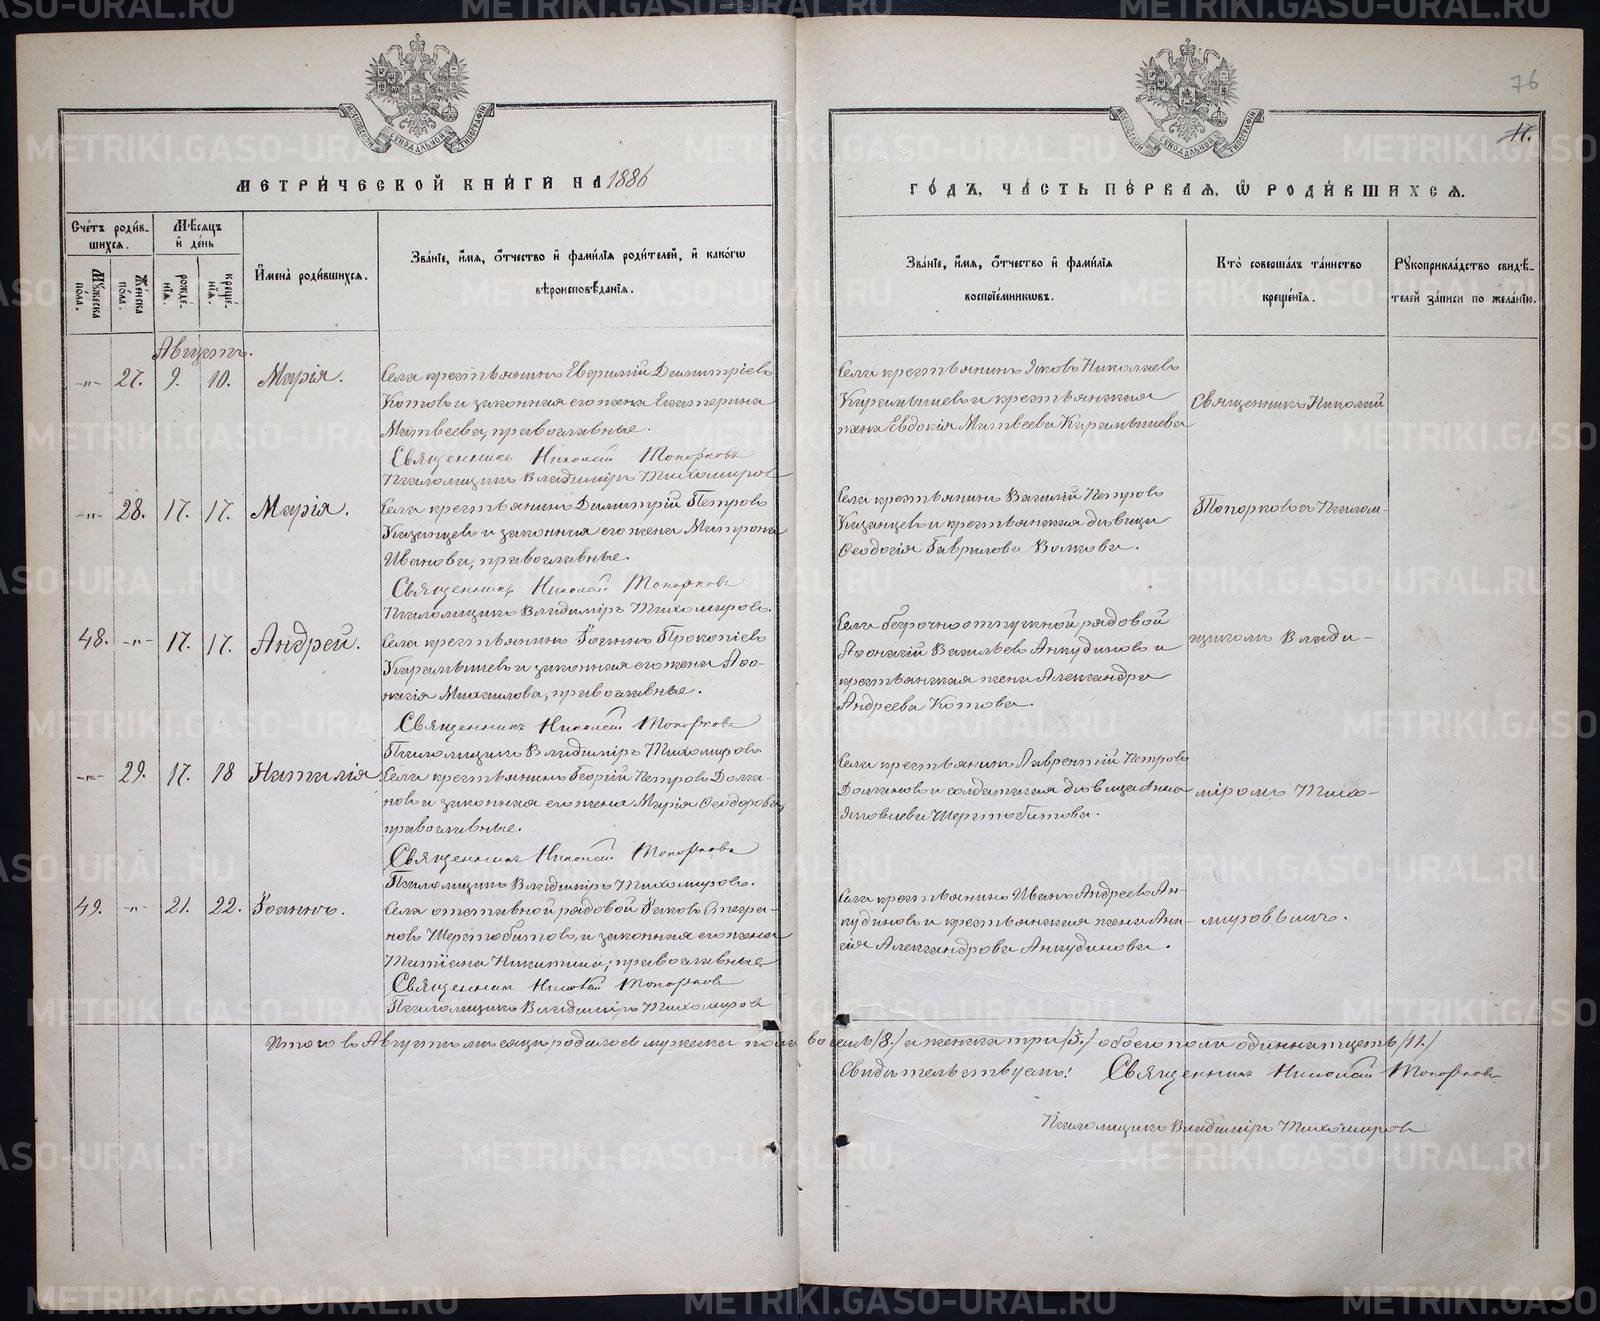 76
11.
МЕТРИ́ЧЕСКОЙ КНИ́ГИ НА 1886
ГО́ДЪ, ЧА́СТЬ ПЕ́РВАЯ, Ѡ РОДИ́ВШИХСЯ.
Сче́тъ роди́вшихся.
Му́жеска по́ла.
Же́нска по́ла.
Мѣ́сяцъ и҆ де́нь
рожде́нїя.
креще́нїя.
И҆мена̀ роди́вшихся.
Зва́нїе, и҆́мя, ѻ҆́тчество и҆ фами́лїя роди́телей, и҆ како́гѡ
вѣроисповѣ́данїя.
Зва́нїе, и҆́мя, ѻ҆́тчество и҆ фами́лїя
воспрїе́мниковъ.
Кто̀ соверша́лъ та́инство
креще́нїя.
Рꙋкоприкла́дство свидѣ́-
телей за́писи по жела́нїю.
Августъ.
-"- 27. 9. 10. Марія.
Села крестьянинъ Евфимій Димитріевъ
Котовъ и законная его жена Екатерина
Матвеева, православные.
Священникъ Николай Топорковъ
Псаломщикъ Владиміръ Тихомировъ
Села крестьянинъ Яковъ Николаевъ
Карамышевъ и крестьянская
жена Евдокія Матвеева Карамышева
Священникъ Николай
-"- 28. 17. 17. Марія.
Села крестьянинъ Димитрій Петровъ
Казанцевъ и законная его жена Матрона
Иванова, православные.
Священникъ Николай Топорковъ
Псаломщикъ Владиміръ Тихомировъ.
Села крестьянинъ Василій Петровъ
Казанцевъ и крестьянская дѣвица
Ѳеодосія Гаврилова Волкова.
Топорковъ и псалом-
48. -"- 17. 17. Андрей.
Села крестьянинъ Іоаннъ Прокопіевъ
Карамышевъ и законная его жена Аѳа-
насія Михаилова, православные.
Священникъ Николай Топорковъ
Псаломщикъ Владиміръ Тихомировъ
Села безсрочноотпускной рядовой
Аѳанасій Васильевъ Анкудиновъ и
крестьянская жена Александра
Андреева Котова.
щикомъ Влади-
-"- 29. 17. 18 Наталія.
Села крестьянинъ Георгій Петровъ Долга-
новъ и законная его жена Марія Ѳеодорова,
православные.
Священникъ Николай Топорковъ
Псаломщикъ Владиміръ Тихомировъ.
Села крестьянинъ Лаврентій Петровъ
Долгановъ и солдатская дѣвица Анна
Яковлева Шерстобитова.
міромъ Тихо-
49. -"- 21. 22. Іоаннъ.
Села отставной рядовой Іаковъ Стефа-
новъ Шерстобитовъ, и законная его жена
Татіана Никитина, православные
Священник Николай Топорковъ
Псаломщикъ Владиміръ Тихомировъ
Села крестьянинъ Иванъ Андреевъ Ан-
кудиновъ и крестьянская жена
Александрова Анкудинова.
мировымъ.
Итого въ Августѣ мѣсяцѣ родилось мужеска пола восемь /8./ а женска три /3./ обоего пола одиннатцеть /11./
Свидѣтельствуемъ: Священникъ Николай Топорковъ
Псаломщикъ Владиміръ Тихомировъ